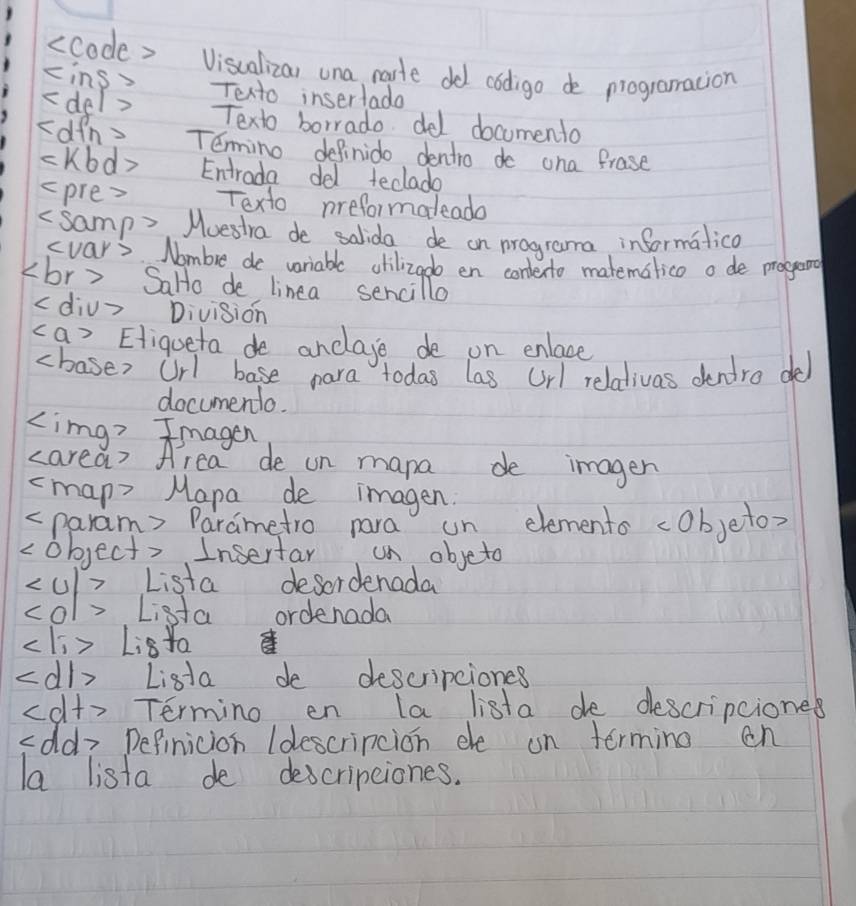 <code> Visualizar una parte del código de programacion
<ins> Texto insertado
<del> Texto borrado del documento
<dfn> Término definido dentro de una frase
<Kbd> Entrada del teclado
<pre> Texto preformateado
<samp> Muestra de salida de un programa informático
<var> Nombre de variable utilizado en contexto matemático o de programa
<br> Salto de linea sencillo
<div> División
<a> Etiqueta de anclaje de un enlace
<base> Url base para todas las Url relativas dentro del
documento.
<img> Imagen
<area> Área de un mapa de imagen
<map> Mapa de imagen.
<param> Parámetro para un elemento <Objeto>
<object> Insertar un objeto
<ul> Lista desordenada
<ol> Lista ordenada
<li> Lista
<dl> Lista de descripciones
<dt> Término en la lista de descripciones
<dd> Definición /descripción de un término en
la lista de descripciones.